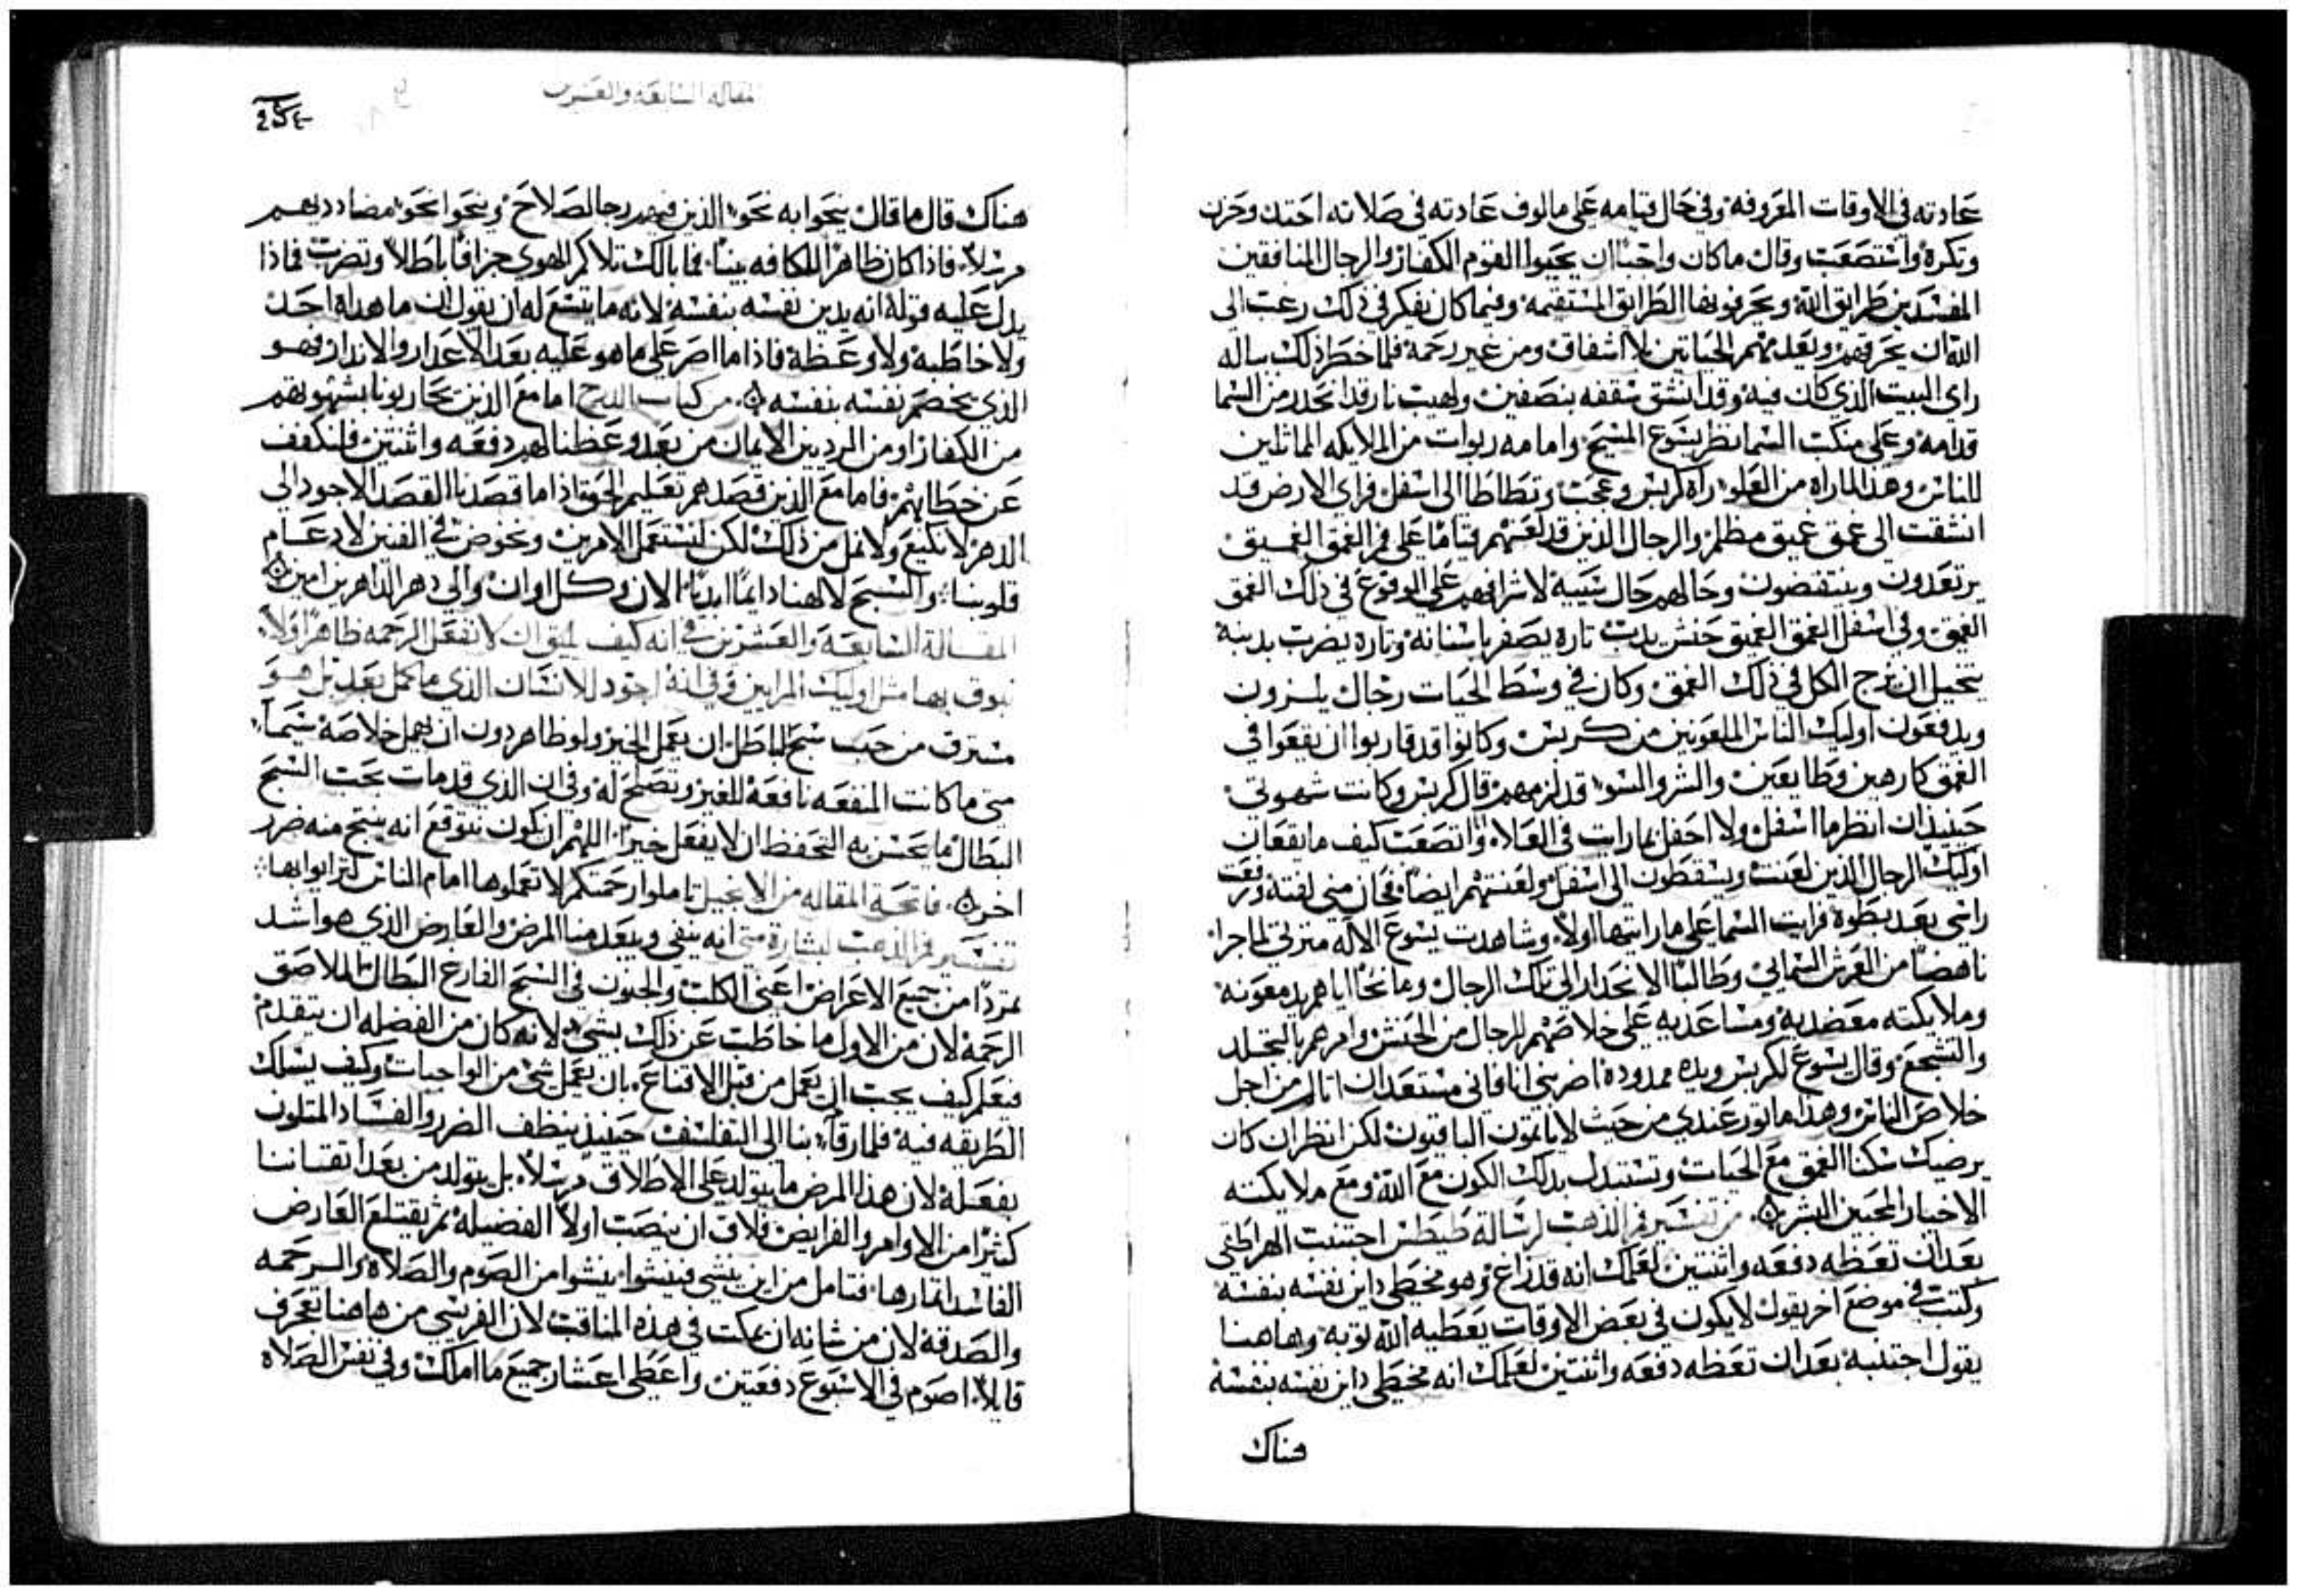 عادته في الاوقات المعروفه وفي حال قيامه على مالوف عادته في صلاته احتد وحزن
وتكره واستصعب وقال ما كان واجبًا ان يحيوا القوم الكفار والرجال المنافقين
المفسدين طرايق الله ويحرفونها الطرايق المستقيمه وفيما كان يفكر في ذلك رغب الى
الله ان يحرقهم ويعدمهم الحياتين بلا اشفاق ومن غير رحمة فلما خطر ذلك بباله
راى البيت الذي كان فيه وقد انشق سقفه بنصفين ولهيب نار قد انحدر من السما
قدامه وعلى منكب السما نظر يسوع المسيح وامامه ربوات من الملايكه المماثلين
للناس وهذا لما راه من العلو راه كربس وعجب وتطاطا الى اسفل فراى الارض قد
انشقت الى عمق عميق مظلم والرجال الذين قد لعنهم قيامًا على فم العمق العميق
يرتعدون وينتفضون وحالهم حال شيبة لاشرافهم على الوقوع في ذلك العمق
العميق وفي اسفل العمق العميق حنش يدب تاره يصفر باسنانه وتاره يضرب بدنبه
يتخيل ان يزج الكل في ذلك العمق وكان في وسط الحيات رجال يلزون
ويدفعون اوليك الناس الملعونين من كربس وكانوا قد قاربوا ان يقعوا في
العمق كارهين وطايعين والشر والسو قد لزمهم قال كربس وكانت شهوتي
حينيذ ان انظر ما اسفل ولا احفل بما رايت في العلاء واتصعب كيف ما يقعان
اوليك الرجال الذين لعنت ويسقطون الى اسفل ولعنتهم ايضًا فحان مني لفتة ورفعت
راسي بعد بطوة فرايت السما على ما رايتها اولًا وشاهدت يسوع الاله مترثي لما جرا
ناهضًا من العرش السمايي وطالبًا الانحدار الى تلك الرجال ومانحًا اياهم يد معونه
وملايكته معضديه ومساعديه على خلاصهم الرجال من الحنش وامرهم بالتجلد
والتشجع وقال يسوع لكربس ويده ممدودة اضربني انا فاني مستعد ان اتالم من اجل
خلاص الناس وهذا ماثور عندي من حيث لا ياتموت الباقيون لكن انظر ان كان
يرضيك سكنا العمق مع الحيات وتستبدل بدلك الكون مع الله ومع ملايكته
الاخيار المحبين البشر من تفسير فم الذهب لرسالة طيطس اجتنب الهراطقي
بعد ان تعظه دفعه واثنتين لعلمك انه قد زاغ وهو مخطي داين نفسه بنفسه
وكتب في موضع اخر يقول لا يكون في بعض الاوقات يعطيه الله توبه وهاهنا
يقول اجتنبه بعد ان تعظه دفعه واثنتين لعلمك انه مخطي داين نفسه بنفسه
هناك
المقاله السابعه والعشرين
هناك قال ما قال ينحوا به نحو الذين فيهم رجا لصلاح وينحوا نحو مضاددیهم
مرسلًا فاذا كان ظاهرًا للكافه بينًا فما بالك تلاكم الهوي جزافًا باطلًا وتضرب فماذا
يدل عليه قوله انه يدين نفسه بنفسه لانه ما يتسع له ان يقول ان ما هداه احد
ولا خاطبه ولا وعظه فاذا ما اصر على ما هو عليه بعد الاعدار والاندار فهو
الذي يخصم نفسه بنفسه من كتاب الدرج اما مع الذين يحاربونا بشهوتهم
من الكفار او من الرديين الايمان من بعد وعظنا لهم دفعه واثنتين فلنكفف
عن خطابهم فاما مع الذين قصدهم تعليم الحق فاذا ما قصدنا القصد الاجود الى
الدهر لا نكيع ولا نمل من ذلك لكن لنستعمل الامرين ونخوض في الفنين لادعام
قلوبنا والسبح لالهنا دايمًا ابديًا الان وكل اوان والى دهر الداهرين امين
المقالة السابعة والعشرين في انه كيف يليق ان لا تفعل الرحمه ظاهرًا ولا
نبوق بها مثل اوليك المرايين وفي انه اجود للانسان الذي ما كمل بعد بل هو
مسترق من حب سبح الباطل ان يعمل الخير ولو ظاهر دون ان يهمل خلاصه سيما
متى ما كانت المنفعه نافعه للغير وتصلح له وفي ان الذي قد مات بحب السبح
البطال ما يحسن به التحفظ ان لا يفعل خيرًا اللهم ان يكون نتوقع انه ينتج منه ضرر
اخر فاتحة المقاله من الانجيل تاملوا رحمتكم لا تعملوها امام الناس لترايوا بها
تفسير فم الذهب لبشارة متى انه ينفي ويبعد منا المرض والعارض الذي هو اشد
تمردًا من جميع الاعراض اعني الكلب والجنون في السبح الفارغ البطال الملاصق
الرحمة لان من الاول ما خاطب عن ذلك بشي لانه كان من الفضله ان يتقدم
فيعلم كيف يجب ان يعمل من قبل الاقناع بان يعمل شي من الواجبات وكيف يسلك
الطريقه فيه فلما رقاء بنا الى التفلسف حينيذ ينظف الضرر والفساد المتلون
بفعله لان هذا المرض ما يتولد على الاطلاق مرسلًا بل يتولد من بعد اتقتاننا
كثيرًا من الاوامر والفرايض فلاق ان ينصب اولًا الفضيلة ثم يقتلع العارض
الفاسد اثمارها فتامل من اين ينشي فينشوا ينشوا من الصوم والصلاة والرحمه
والصدقة لان من شانه ان يمكث في هذه المناقب لان الفريسي من هاهنا تعجرف
قايلًا اصوم في الاسبوع دفعتين واعطى اعشار جميع ما املك وفي نفس الصلاه